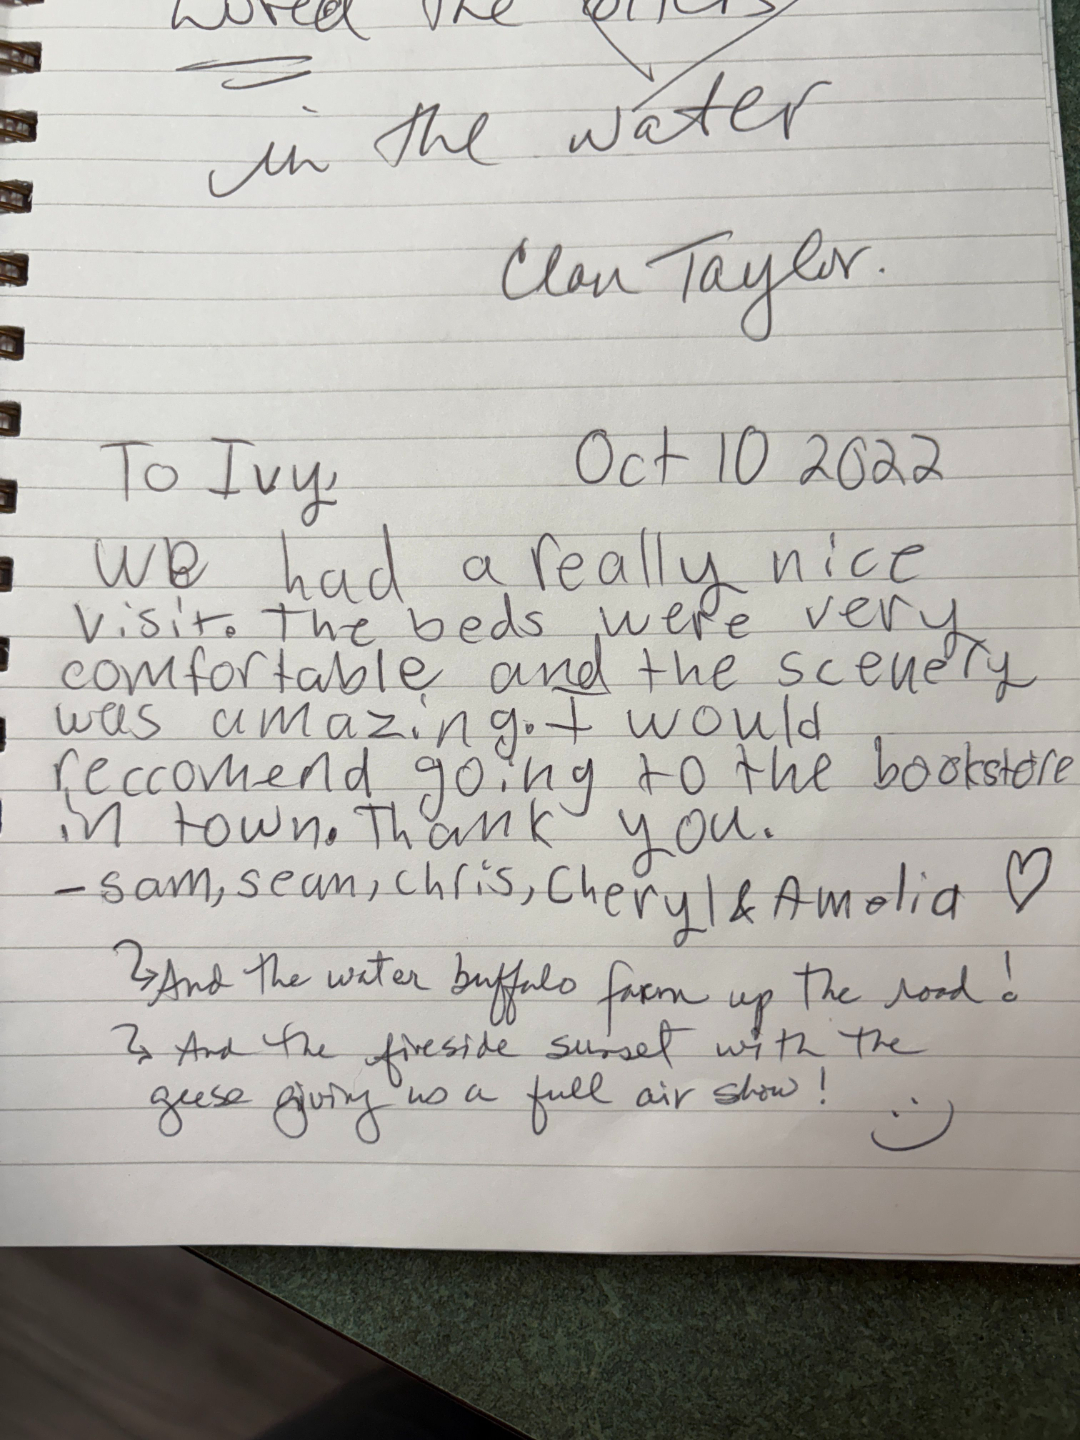 Loved the otters
in the water
Clan Taylor.
To Ivy, Oct 10 2022
We had a really nice
visit. The beds were very
comfortable and the scenery
was amazing. I would
reccomend going to the bookstore
in town. Thank you.
-sam, sean, chris, Cheryl & Amelia ♡
↳ And the water buffalo farm up the road!
↳ And the fireside sunset with the
geese giving us a full air show! :)